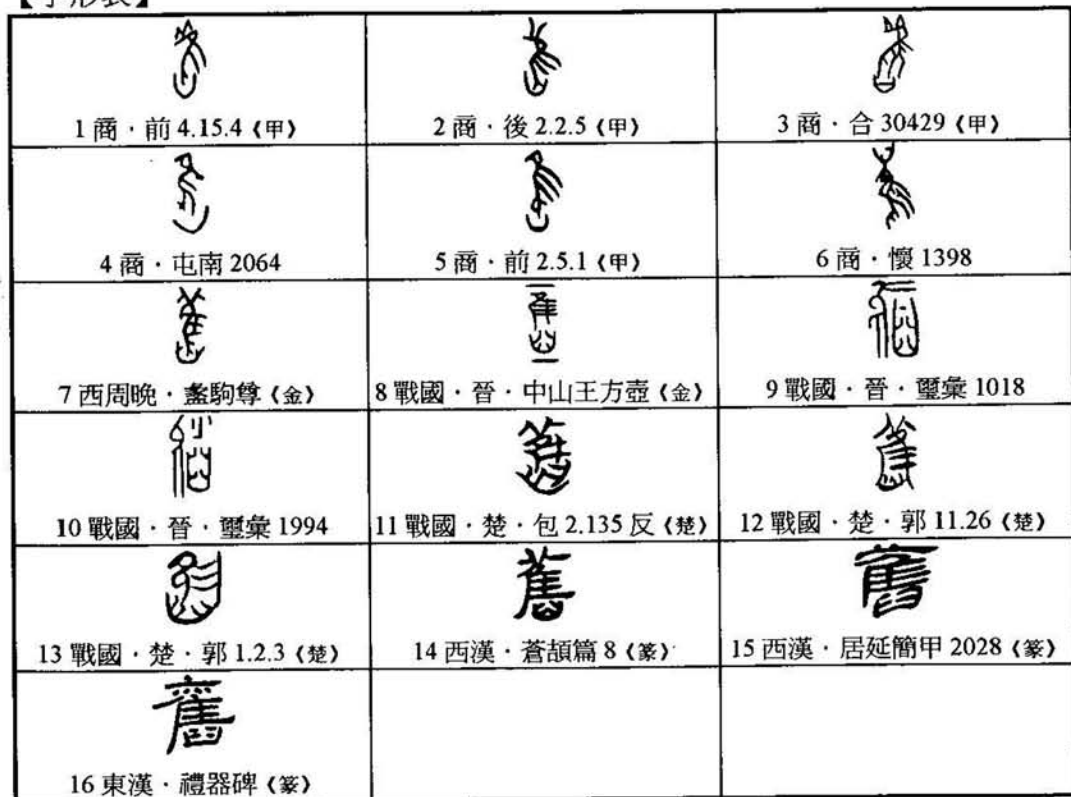 【字形表】
1 商・前 4.15.4《甲》
2 商・後 2.2.5《甲》
3 商・合 30429《甲》
4 商・屯南 2064
5 商・前 2.5.1《甲》
6 商・懷 1398
7 西周晚・盠駒尊《金》
8 戰國・晉・中山王方壺《金》
9 戰國・晉・璽彙 1018
10 戰國・晉・璽彙 1994
11 戰國・楚・包 2.135 反《楚》
12 戰國・楚・郭 11.26《楚》
13 戰國・楚・郭 1.2.3《楚》
14 西漢・蒼頡篇 8《篆》
15 西漢・居延簡甲 2028《篆》
16 東漢・禮器碑《篆》